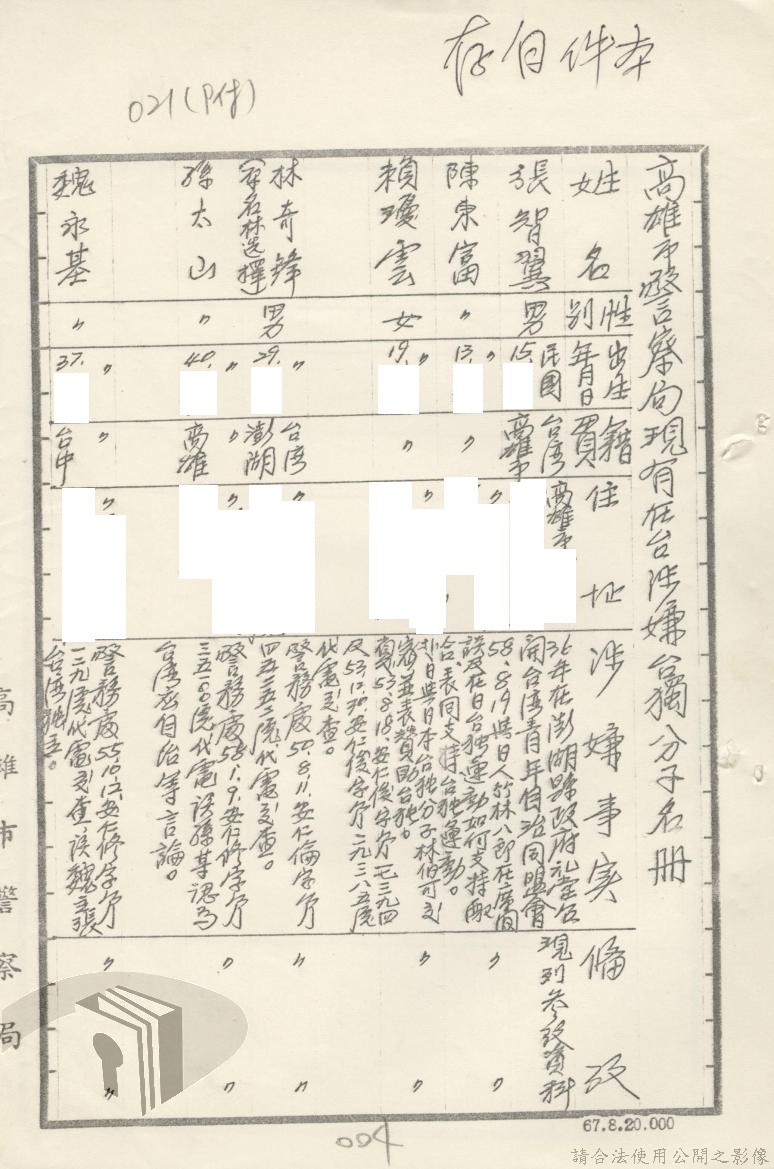 存自件本
021(P付)
高雄市警察局現有在台涉嫌台獨分子名冊
姓名
性別
出生年月日
籍貫
住址
涉嫌事实
備攷
張智翼
男
民國
15.
台湾
高雄市
高雄市
36年在澎湖縣政府礼堂召
開台湾青年自治同盟會
現列參攷資料
陳東富
〃
〃
13.
〃
〃
58.8.19與日人竹林八郎在席間
談及在日台独運動如何支持配
合、表同支持台独運動。
〃
〃
賴瓊雲
女
〃
19.
〃
〃
赴日與日本台独分子林伯可交
宴並表贊助台独。
及53.12.30.安仁俊字第二九三八五号
代電交查。
〃
〃
林奇鋒
男
〃
29.
台湾
澎湖
〃
警務處50.8.11.安仁倫字第
四五三五二號代電交查。
〃
〃
孫太山
〃
〃
40.
〃
高雄
〃
警務處58.1.9.安仁修字第
三五一〇號代電該孫某認為
台湾应自治等言論。
〃
〃
魏永基
〃
〃
37.
〃
台中
〃
警務處55.10.12.安仁修字第
一二九號代電交查該魏主張
台湾独立。
〃
〃
高雄市警察局
004
67.8.20.000
請合法使用公開之影像